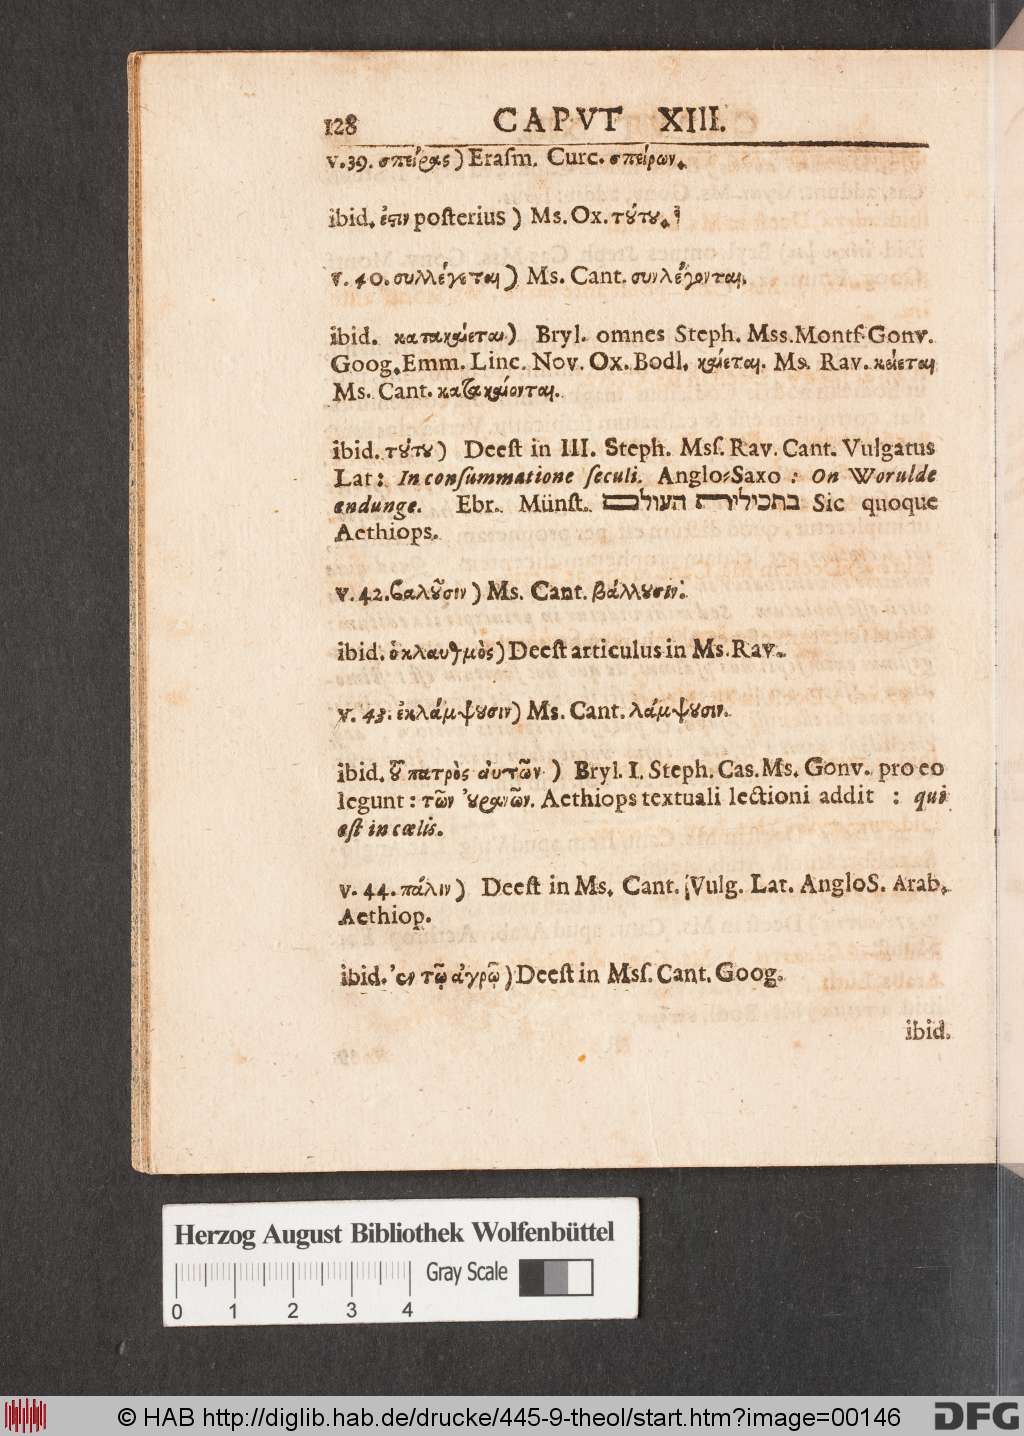 128 CAPVT XIII.
v.39. σπείρας) Eraſm. Curc. σπείρων.
ibid. ἐςιν poſterius ) Ms. Ox. τύτυ.
v. 40. συλλέγεται) Ms. Cant. συνλέγονται.
ibid. κατακαίεται) Bryl. omnes Steph. Mss. Montf. Gonv.
Goog. Emm. Linc. Nov. Ox. Bodl. καίεται. Ms. Rav. κέιεται
Ms. Cant. κατακαίονται.
ibid. τȣ́τȣ) Deeſt in III. Steph. Mſſ. Rav. Cant. Vulgatus
Lat: In conſummatione ſeculi. Anglo-Saxo : On Worulde
endunge. Ebr. Münſt. בתכלית העולם Sic quoque
Aethiops.
v. 42. ϐαλȣ̃σιν) Ms. Cant. βάλλȣσιν.
ibid. ὁ κλαυθμὸς) Deeſt articulus in Ms. Rav.
v. 43. ἐκλάμψȣσιν) Ms. Cant. λάμψȣσιν.
ibid. ȣ͂ πατρὸς ἀυτῶν ) Bryl. I. Steph. Cas. Ms. Gonv. pro eo
legunt: τῶν ȣ̓ρανῶν. Aethiops textuali lectioni addit : qui
eſt in cœlis.
v. 44. πάλιν) Deeſt in Ms. Cant. Vulg. Lat. AngloS. Arab.
Aethiop.
ibid. ἐν τῷ ἀγρῷ) Deeſt in Mſſ. Cant. Goog.
ibid.
Herzog August Bibliothek Wolfenbüttel
Gray Scale
0 1 2 3 4
© HAB http://diglib.hab.de/drucke/445-9-theol/start.htm?image=00146
DFG